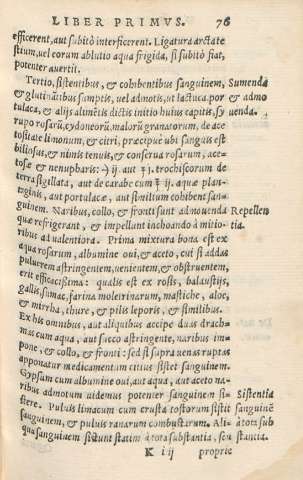 LIBER PRIMVS. 76
efficerent, aut subitò interficerent. Ligatura arctate
stium, vel eorum ablutio aqua frigida, si subitò fiat,
potenter auertit.
Tertio, sistentibus, & cohibentibus sanguinem, Sumenda
& glutinātibus sumptis, vel admotis, ut lactuca, por & admo
tulaca, & alijs alimētis dictis initio huius capitis, sy uenda.
rupo rosarū, cydoneorū, malorū granatorum, de ace
tositate limonum, & citri, præcipuè ubi sanguis est
biliosus, & nimis tenuis, & conserua rosarum, ace-
tosæ & nenupharis: ʒ ij. aut ʒ j. trochiscorum de
terra sigillata, aut de carabe cum ℥ ij. aquæ plan-
taginis, aut portulacæ, aut similium cohibent san-
guinem. Naribus, collo, & fronti sunt admouenda Repellen
quæ refrigerant, & impellunt inchoando à mitio- tia.
ribus ad ualentiora. Prima mixtura bona est ex
aqua rosarum, albumine oui, & aceto, cui si addas
puluerem astringentem, uenientem, & obstruentem,
erit efficacißima: qualis est ex rosis, balaustijs,
gallis, sumac, farina moleirinarum, mastiche, aloe,
& mirrha, thure, & pilis leporis, & similibus.
Ex his omnibus, aut aliquibus accipe duas drach-
mas cum aqua, aut succo astringente, naribus im-
pone, & collo, & fronti: sed si supra uenas ruptas
apponatur medicamentum citius sistet sanguinem.
Gypsum cum albumine oui, aut aqua, aut aceto na-
ribus admotum uidemus potenter sanguinem si- Sistentia
stere. Puluis limacum cum crusta tostorum sistit sanguinē
sanguinem, & puluis ranarum combustarum. Ali- à tota sub
qua sanguinem sistunt statim à tota substantia, seu stantia.
K iij proprie